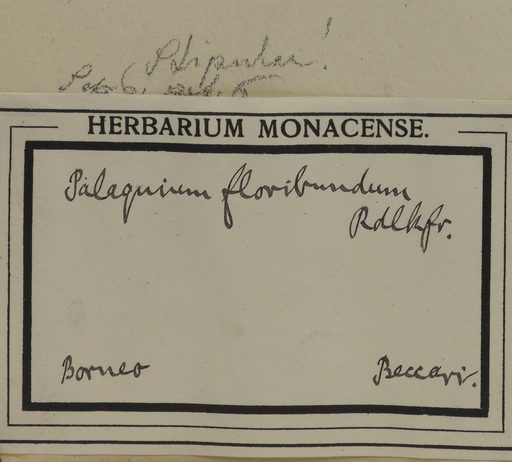 Stipulae!
HERBARIUM MONACENSE.
Palaquium floribundum
Rdlkfr.
Borneo
Beccari.